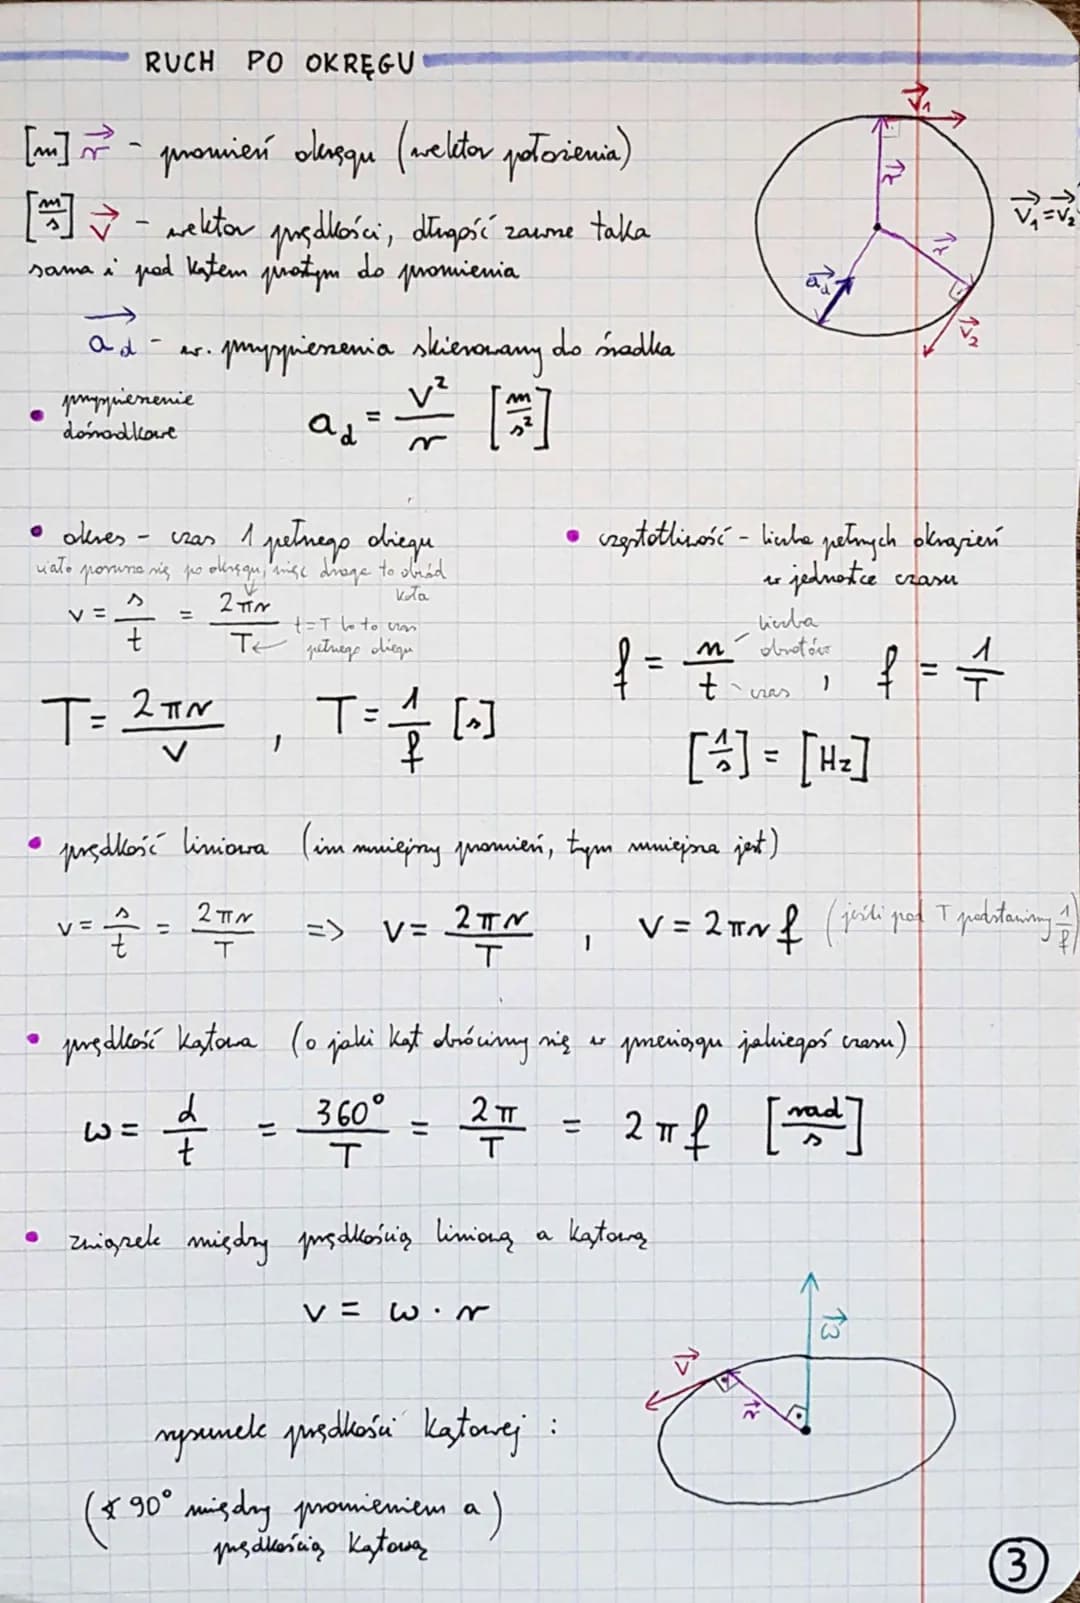 RUCH PO OKRĘGU
[m] r⃗ - promień okręgu (wektor położenia)
[m/s] v⃗ - wektor prędkości, długość zawsze taka
sama i pod kątem prostym do promienia
a⃗_d - w. przyspieszenia skierowany do środka
• przyspieszenie
dośrodkowe
a_d = v²/r [m/s²]
v⃗₁
r⃗
r⃗
a⃗_d
v⃗₂
v⃗₁=v⃗₂
• okres - czas 1 pełnego obiegu
ciało porusza się po okręgu, więc droga to obwód
koła
v = s/t = 2πr/T
t=T bo to czas
pełnego obiegu
T = 2πr/v , T = 1/f [s]
• częstotliwość - liczba pełnych okrążeń
w jednostce czasu
liczba
obrotów
f = n/t , f = 1/T
czas
[1/s] = [Hz]
• prędkość liniowa (im mniejszy promień, tym mniejsza jest)
v = s/t = 2πr/T => v = 2πr/T , v = 2πrf (jeśli pod T podstawimy 1/f)
• prędkość kątowa (o jaki kąt obrócimy się w przeciągu jakiegoś czasu)
ω = d/t = 360°/T = 2π/T = 2πf [rad/s]
• związek między prędkością liniową a kątową
v = ω · r
ω⃗
v⃗
r⃗
rysunek prędkości kątowej :
(∢ 90° między promieniem a
prędkością kątową)
3